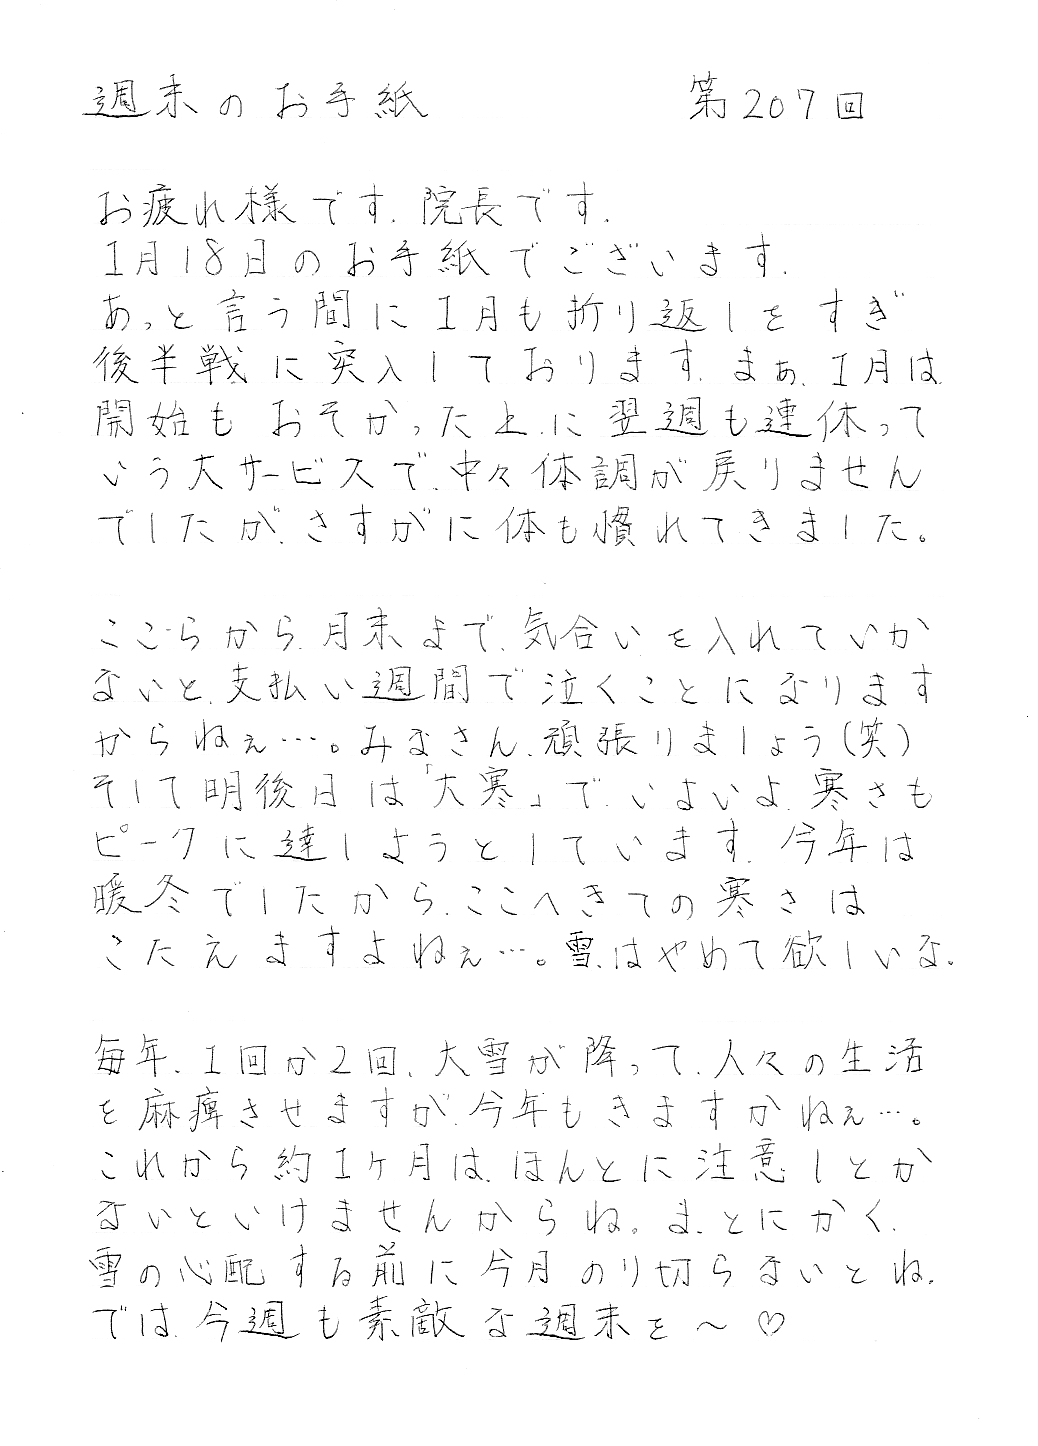 週末のお手紙 第207回
お疲れ様です.院長です.
1月18日のお手紙でございます.
あっと言う間に1月も折り返しをすぎ
後半戦に突入しております.まぁ、1月は、
開始もおそかった上、に翌週も連休って
いう大サービスで、中々体調が戻りません
でしたが、さすがに体も慣れてきました。
ここらから、月末まで、気合いを入れていか
ないと、支払い週間で泣くことになります
からねぇ…。みなさん、頑張りましょう(笑)
そして明後日は「大寒」で、いよいよ、寒さも
ピークに達しようとしています.今年は
暖冬でしたから、ここへきての寒さは
こたえますよねぇ…。雪、はやめて欲しいな.
毎年、1回か2回、大雪が降って、人々の生活
を麻痺させますが、今年もきますかねぇ…。
これから約1ヶ月は、ほんとに注意しとか
ないといけませんからね。ま、とにかく、
雪の心配する前に今月のり切らないとね.
では、今週も素敵な週末を〜♡